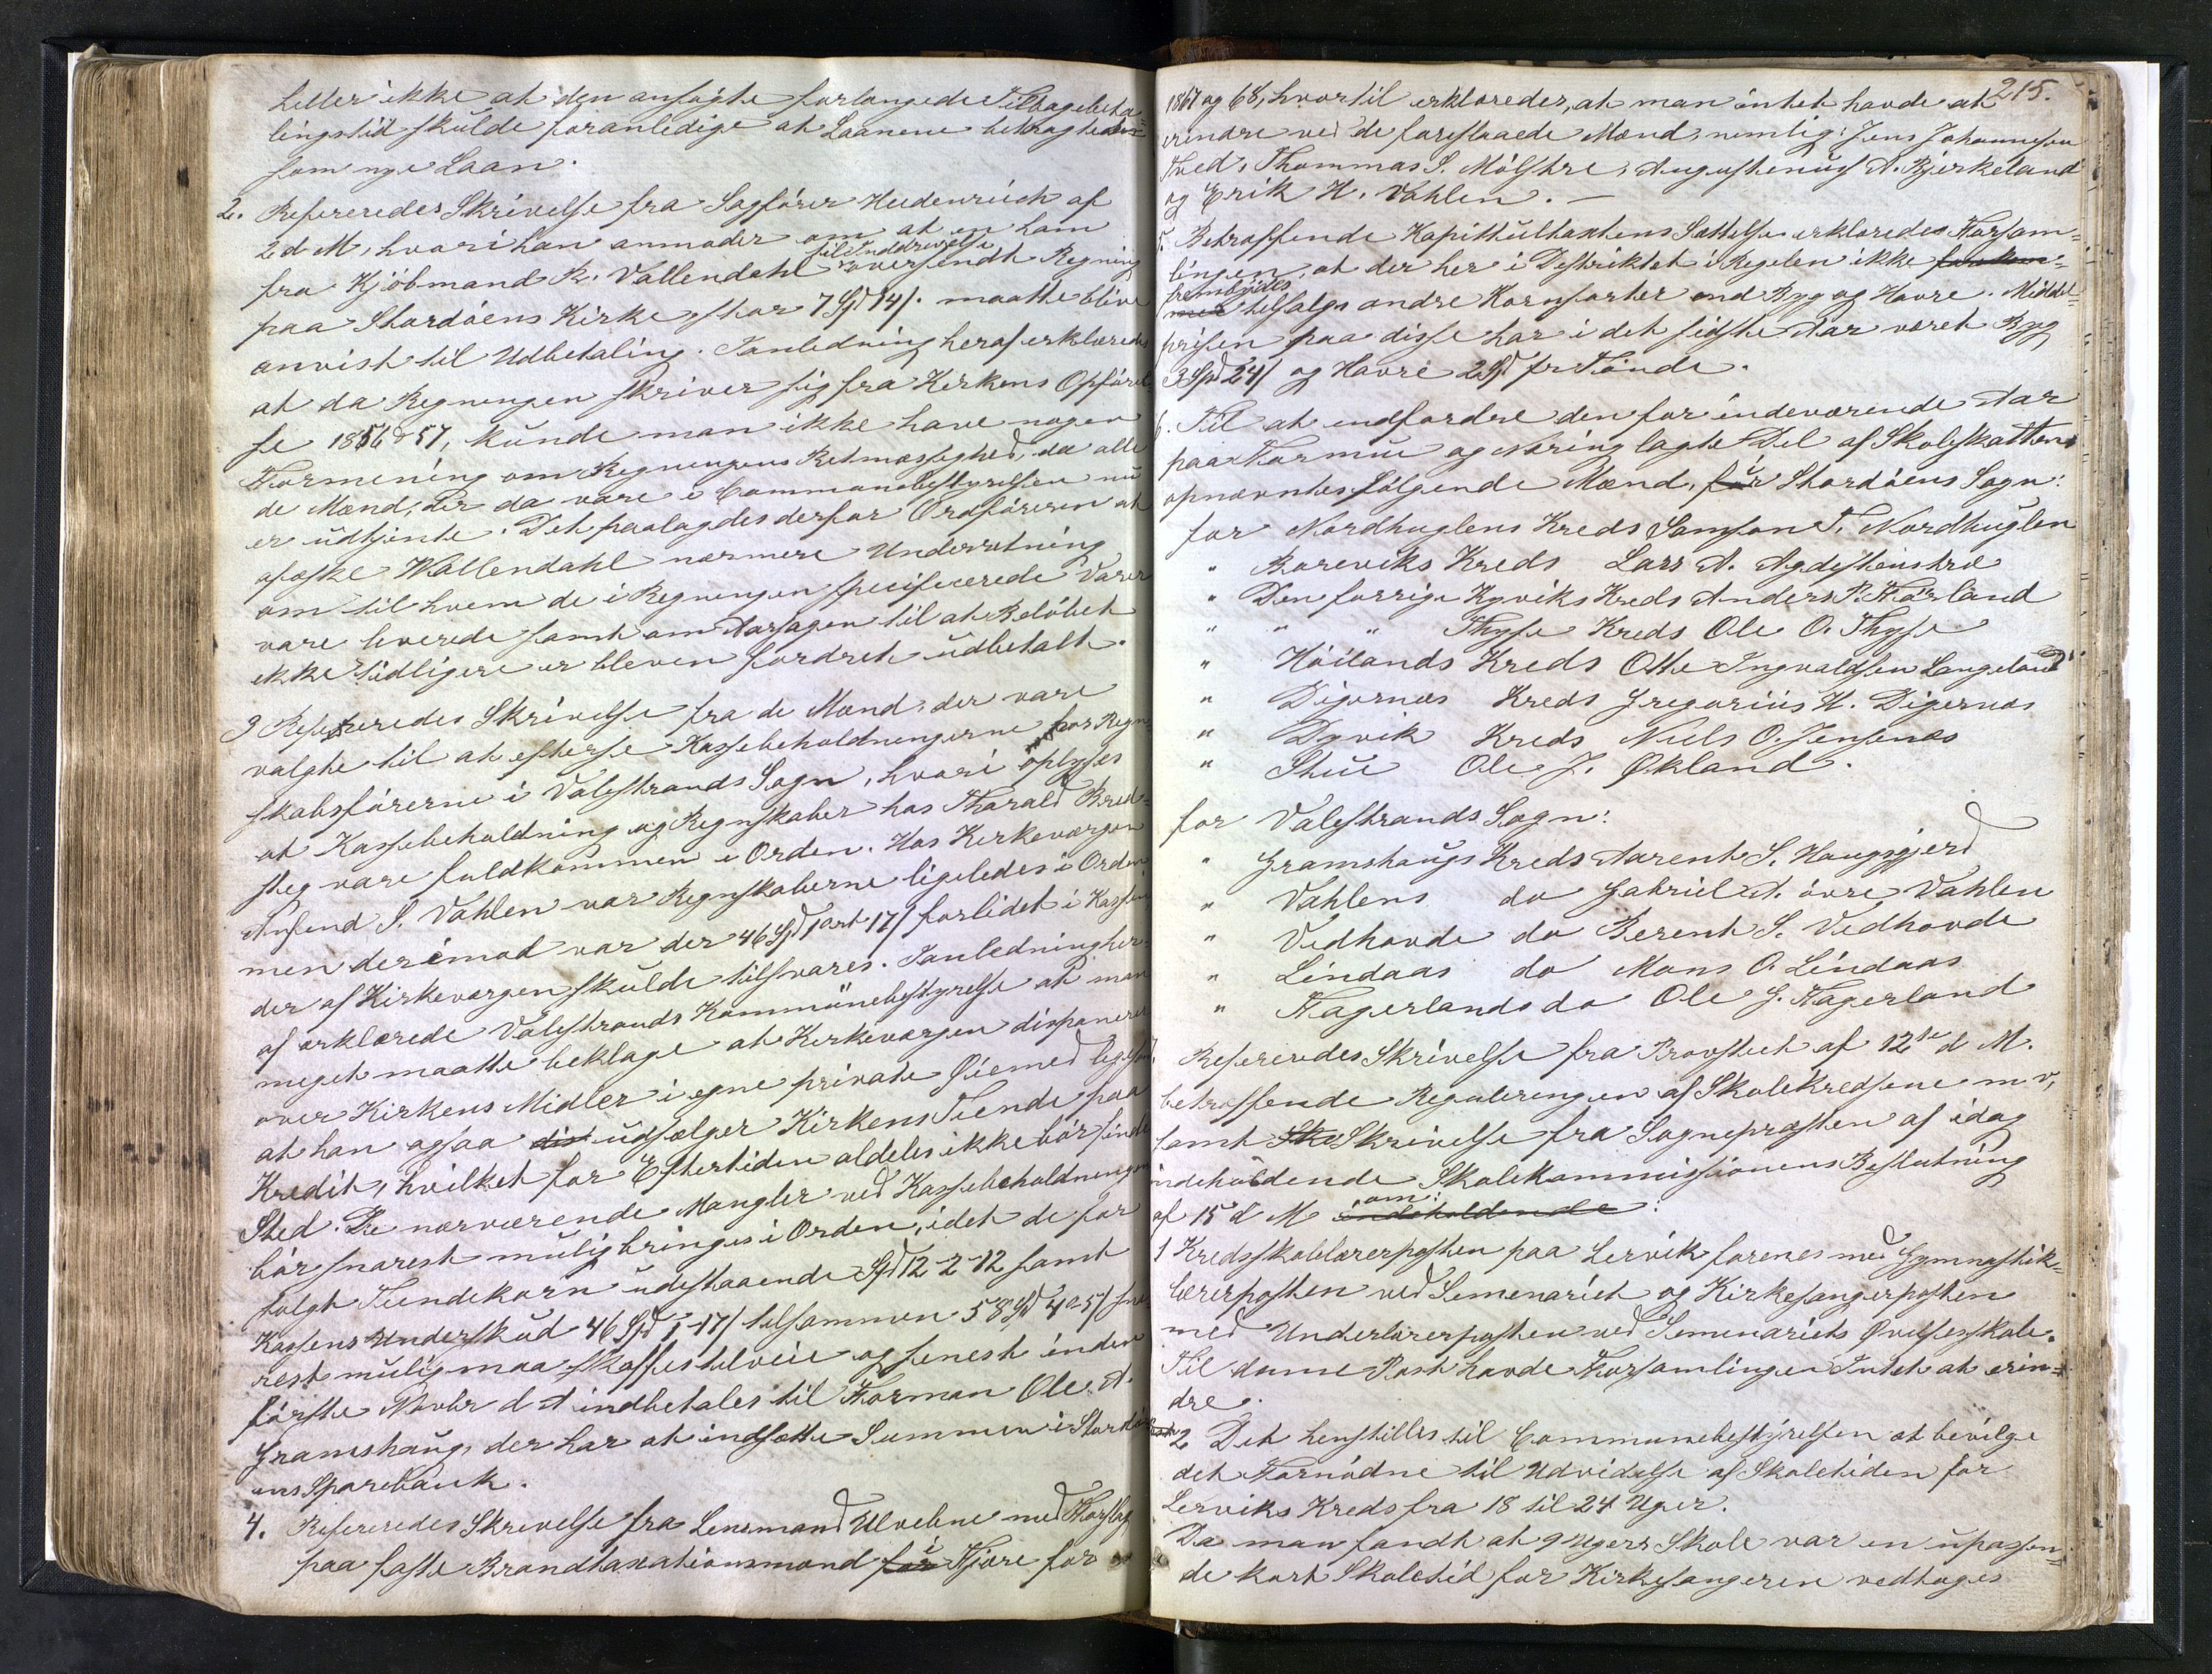 heller ikke at den ansøgte forlængede Tilbagebeta=
lingstid skulde foranledige at Laanene betragtedes
som nye Laan.
2. Refereredes Skrivelse fra Sagfører Heidenreich af
2 d M, hvori han anmoder om at en ham
til Inddrivelse
fra Kjøbmand R. Vallendahl oversendt Regning
paa Stordøens Kirke stor 7 Spd 14 s. maatte blive
anvist til Udbetaling. I anledning heraf erklæredes
at da Regningen skriver sig fra Kirkens Opførel
se 1856 & 57, kunde man ikke have nogen
Formening om Regningens Retmæssighed, da alle
de Mænd, der da vare i Communebestyrelsen nu
er udtjente. Det paalagdes derfor Ordføreren at
afæske Wallendahl nærmere Underretning
om til hvem de i Regningen specificerede Varer
vare leverede samt om Aarsagen til at Beløbet
ikke tidligere er bleven fordret udbetalt.
3 Refereredes Skrivelse fra de Mænd, der vare
valgte til at efterse Kassebeholdningerne hos Regn=
skabsførerne i Valestrands Sogn, hvori oplyses
at Kassebeholdning og Regnskaber hos Tharald Bred=
steg vare fuldkommen i Orden. Hos Kirkeværgen
Aufend S. Vahlen var Regnskaberne ligeledes i Orden
men derimod var der 46 Spd 1 ort 17 s forlidet i Kassen
der af Kirkeværgen skulde tilsvares. I anledning her
af erklærede Valestrands Kommunebestyrelse at man
meget maatte beklage at Kirkeværgen disponerer
over Kirkens Midler i egne private Øiemed ligesom
at han ogsaa dis udsælger Kirkens Tiende paa
Kredit, hvilket for Eftertiden aldeles ikke bør finde
Sted. De nærværende Mangler ved Kassebeholdningen
bør snarest mulig bringes i Orden, idet de for
solgt Tiendekorn udestaaende Spd 12-2-12 samt
Kassens Underskud 46 Spd 1-17 s tilsammen 58 Spd 4-5 s sna
rest mulig maa skaffes tilveie og senest inden
første Novbr d A indbetales til Formand Ole A.
Gramshaug, der har at indsætte Summen i Stordø
ens Sparebank.
4. Refereredes Skrivelse fra Lensmand Ulvebne med Forslag
paa faste Brandtaxationsmænd for Fjære for
215.
1867 og 68, hvortil erklæredes, at man intet havde at
erindre ved de foreslaaede Mænd, nemlig: Jens Johannesen
Tved, Thommas S. Mølstre, Augustenus A. Bjerkeland
og Erik H. Vahlen. —
5. Betræffende Kapittultaxtens Sættelse erklæredes Forsam=
lingen, at der her i Distriktet i Regelen ikke forekom=
frembydes
mer tilsalgs andre Kornsorter end Byg og Havre. Middel=
prisen paa disse har i det sidste Aar været Byg
3 Spd 24 s og Havre 2 Spd pr Tønde.
6. Til at indfordre den for indeværende Aar
paa Formue og Næring lagte Del af Skoleskatten
opnævntes følgende Mænd, for Stordøens Sogn:
for Nordhuglens Kreds Samson T. Nordhuglen
" Boreviks Kreds Lars A. Agdesteinstræ
" Den forrige Kyviks Kreds Anders P. Førland
" " " Thyse Kreds Ole O. Thyse
" Høilands Kreds Otte Ingvaldsen Langeland
" Digernæs Kreds Gregorius H. Digernæs
" Dyvik Kreds Niels O. Jensenæs
" Stue Ole J. Økland.
for Valestrands Sogn:
" Gramshaugs Kreds Aarent S. Haugsgjerd
" Vahlens do Gabriel A. øvre Vahlen
" Vedhovde do Berent S. Vedhovde
" Lindaas do Mons O. Lindaas
" Fagerlands do Ole J. Fagerland
Refereredes Skrivelse fra Provstiet af 12te d M.
betræffende Reguleringen af Skolekredsene m v,
samt Sko Skrivelse fra Sognepræsten af idag
indeholdende Skolekommissionens Beslutning
af 15 d M indeholdende om:
1 Kredsskolelærerposten paa Lervik forenes med Gymnastik=
lærerposten ved Semenariet og Kirkesangerposten
med Underlærerposten ved Seminariets Øvelsesskole.
Til denne Post havde Forsamlingen Intet at erin=
dre.
2 Det henstilles til Communebestyrelsen at bevilge
det Fornødne til Udvidelse af Skoletiden for
Lerviks Kreds fra 18 til 24 Uger.
Da man fandt at 9 Ugers Skole var en upassen=
de kort Skoletid for Kirkesangeren vedtoges